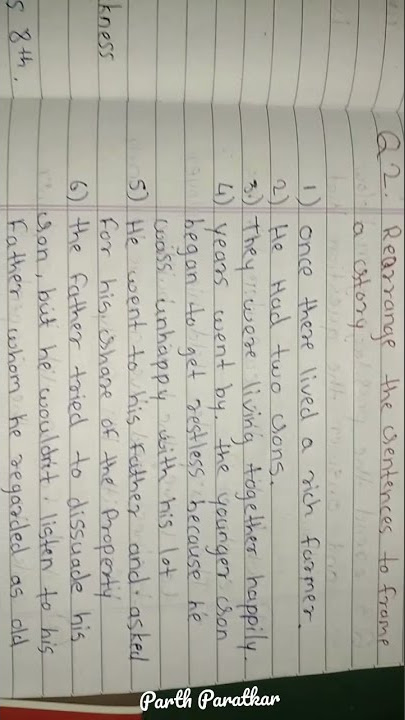 Q2. Rearrange the sentences to frame
a story.
1) once there lived a rich farmer.
2) He Had two sons.
3) They were living together happily.
4) years went by. the younger son
began to get restless because he
wass unhappy with his lot
5) He went to his father and asked
For his share of the Property
6) the father tried to dissuade his
son, but he wouldn't listen to his
Father whom he regarded as old
kness
s 8th.
Parth Paratkar